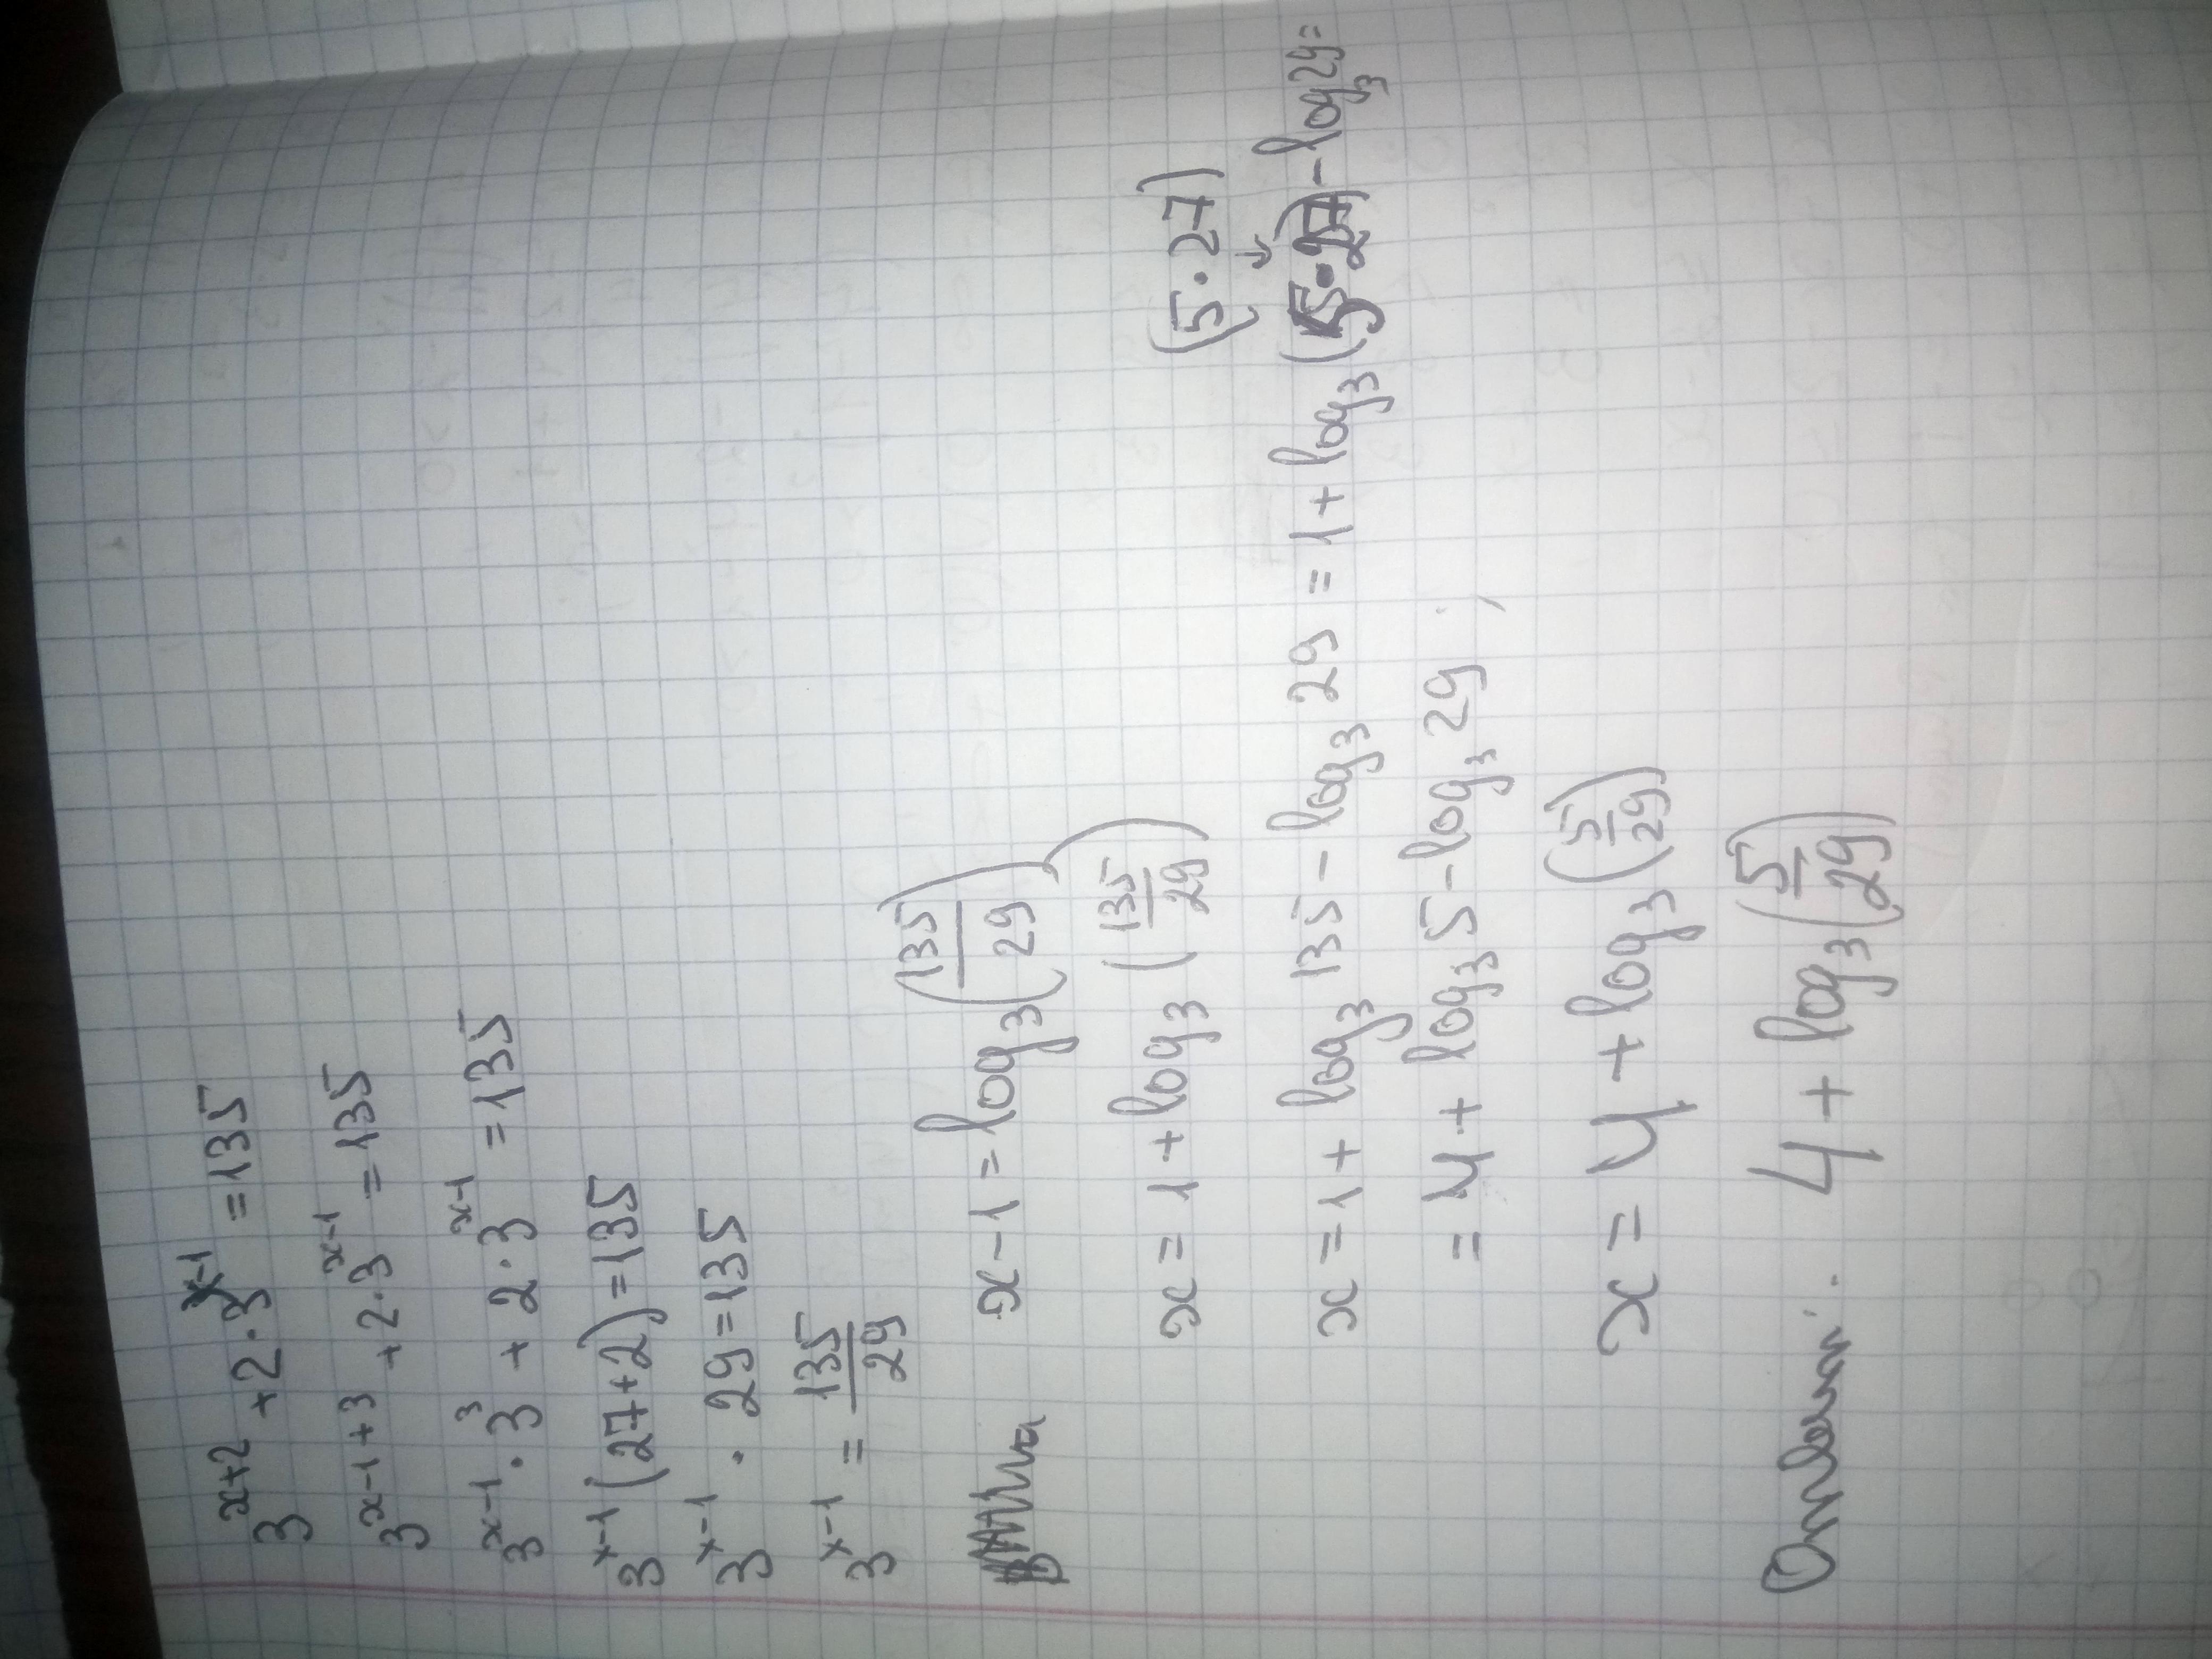 3^{x+2} + 2·3^{x-1} = 135
3^{x-1+3} + 2·3^{x-1} = 135
3^{x-1}·3^3 + 2·3^{x-1} = 135
3^{x-1}(27+2) = 135
3^{x-1}·29 = 135
3^{x-1} = 135/29
x-1 = log_3(135/29)
x = 1 + log_3(135/29)
(5·27)
x = 1 + log_3 135 - log_3 29 = 1 + log_3(5·27) - log_3 29 =
= 4 + log_3 5 - log_3 29;
x = 4 + log_3(5/29)
Ответ: 4 + log_3(5/29)